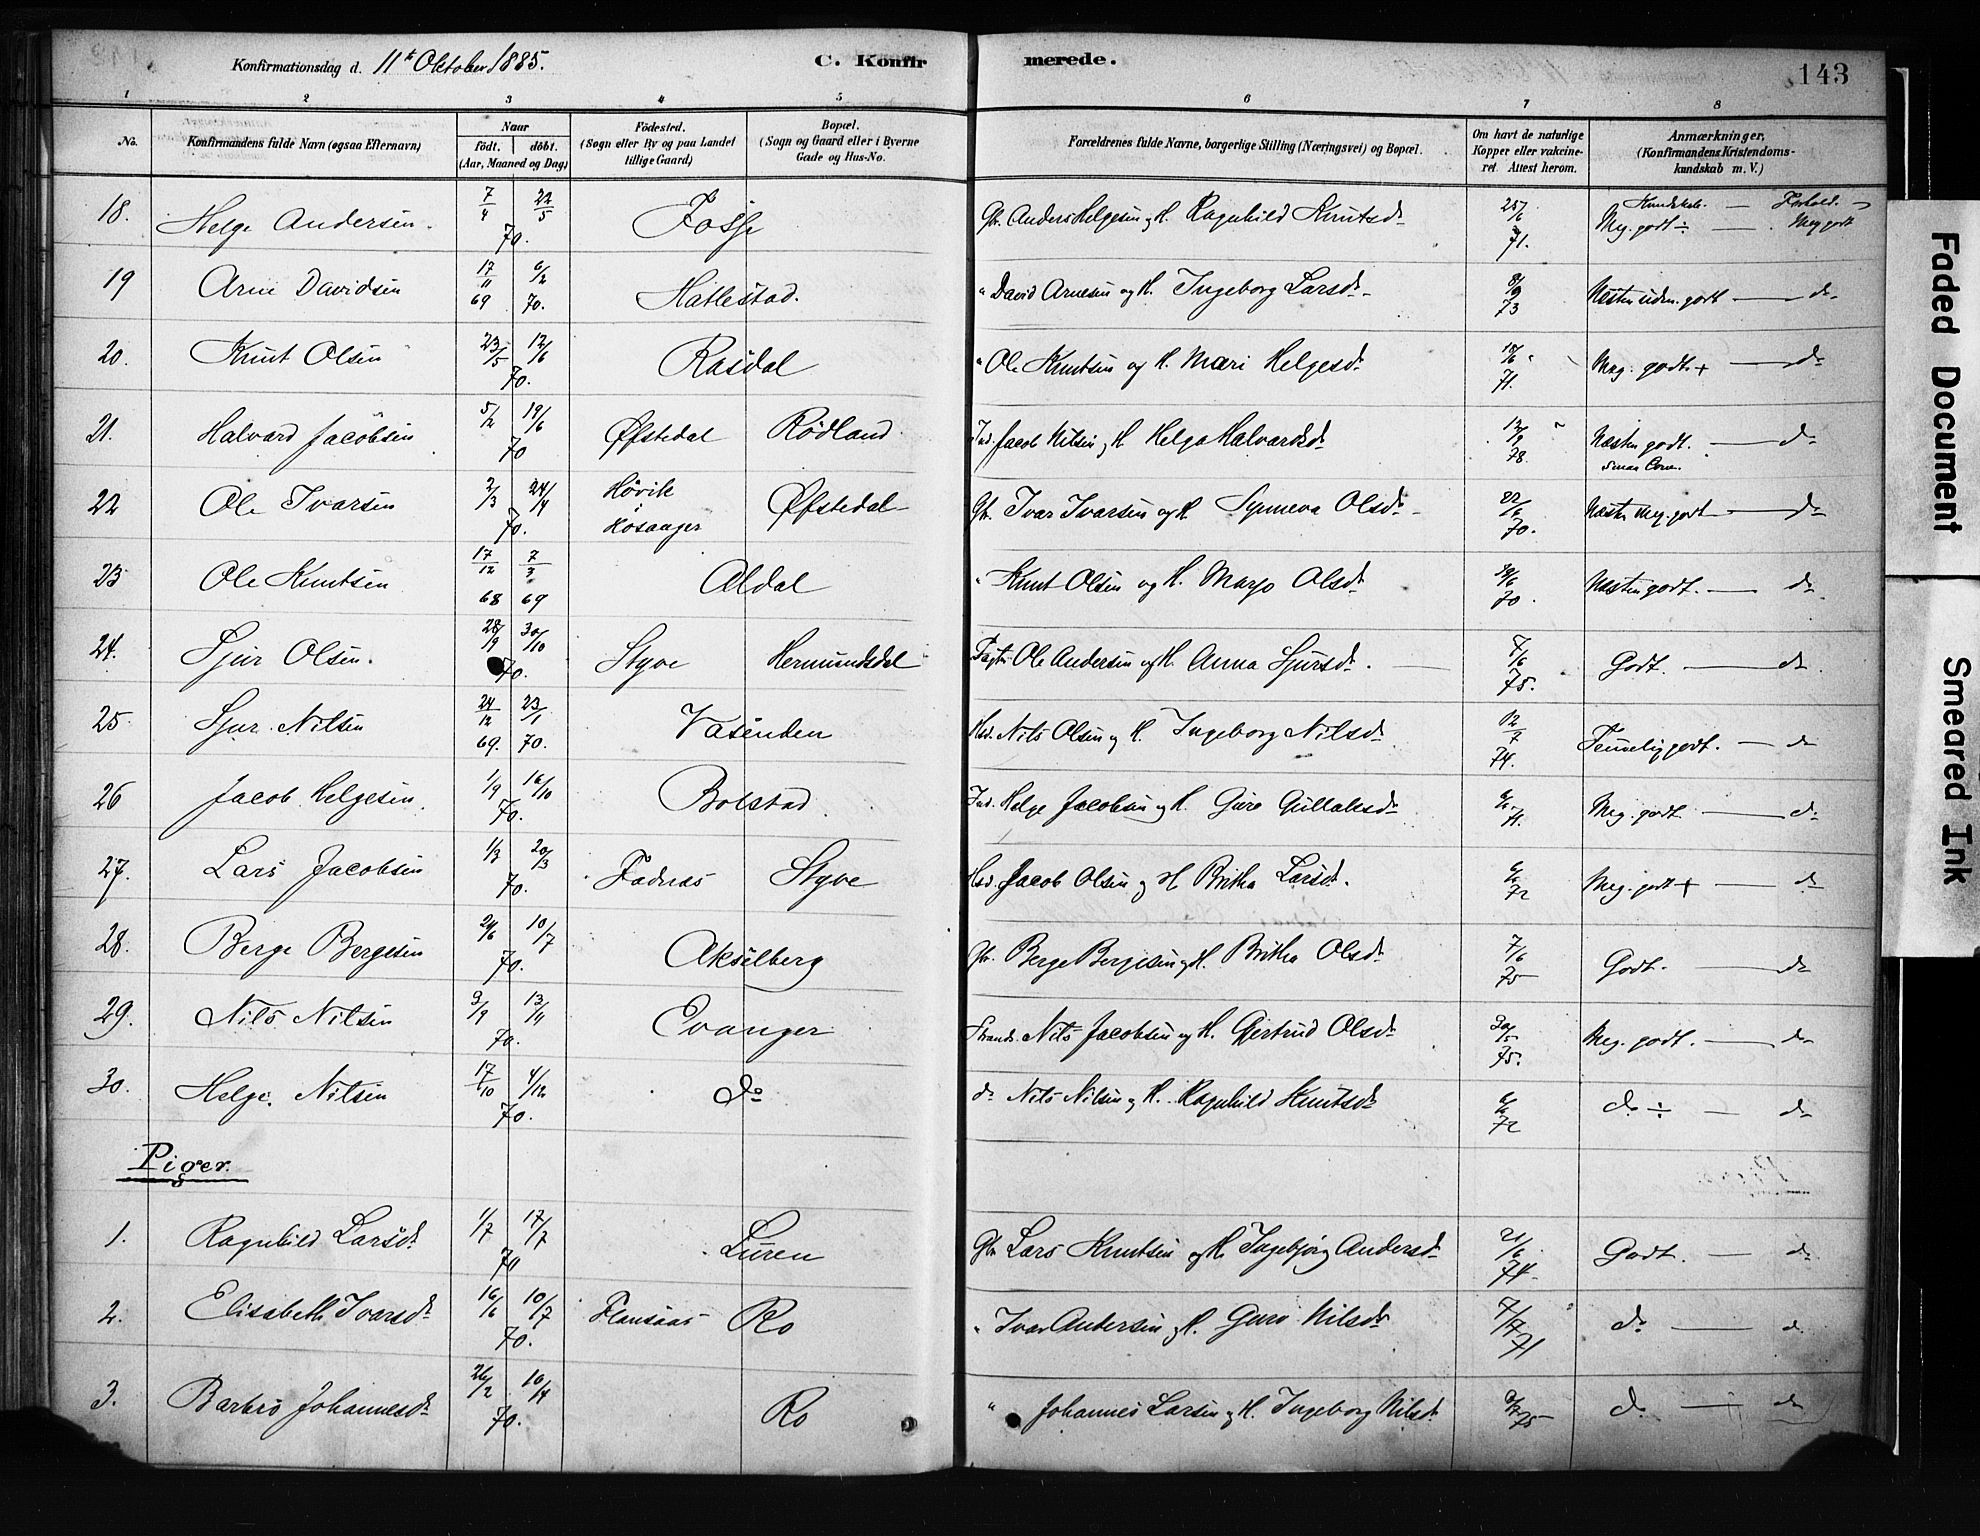 Konfirmationsdag d. 11te Oktober 1885. C. Konfirmerede. 143
1 2 3 4 5 6 7 8
No. Konfirmandens fulde Navn (ogsaa Efternavn) Naar født. døbt. (Aar, Maaned og Dag) Födested. (Sogn eller By og paa Landet tillige Gaard) Bopæl. (Sogn og Gaard eller i Byerne Gade og Hus-No. Forældrenes fulde Navne, borgerlige Stilling (Næringsvei) og Bopæl. Om havt de naturlige Kopper eller vakcineret. Attest herom. Anmærkninger. (Konfirmandens Kristendomskundskab m. V.)
Kundskab. — Forhold.
18. Helge Andersen. 7/4 22/5 70. Fosse Gbr. Anders Helgesen og H. Ragnhild Knutsdr 25/6 71. Meg. godt ÷ — Meg godt
19 Arne Davidsen 17/11 69 6/2 70. Hatlestad. " David Arnesen og H. Ingeborg Larsdr 8/9 73 Næsten godt — do
20. Knut Olsen 23/5 12/6 70. Rasdal " Ole Knutsen og H. Mari Helgesdr 71. Meg. godt + — do
21. Halvard Jacobsen 5/12 19/6 70 Øfstedal Rødland Ind. Jacob Nilsen og H. Helga Halvardsdr 12/9 78. Næsten godt. — do
22 Ole Ivarsen 2/3 24/4 70. Høvik Hosanger Øfstedal Gbr. Ivar Ivarsen og H. Synneva Olsdr 22/6 70. Næsten meg. godt — do
23 Ole Knutsen 17/12 68 7/3 69 Aldal " Knut Olsen og H. Marjo Olsdr 70. Næsten godt. — do
24. Sjur Olsen. 28/9 30/10 70. Styve Hermundsdal Ole Andersen og H. Anna Sjursdr. 7/6 75. Godt. — do
25. Sjur Nilsen 24/12 69. 23/1 70. Vasenden Hsd. Nils Olsen og H. Ingeborg Nilsdr 12/7 74. Temmelig godt. — do
26 Jacob Helgesen. 1/9 16/10 70. Bolstad Ind. Helge Jacobsen og H. Guro Gullaksdr 71. Meg. godt — do
27. Lars Jacobsen 1/3 20/3 70. Fadnes Styve Hsd. Jacob Olsen og H Britha Larsdr. 6/6 72 Meg. godt + — do
28. Berge Bergesen 24/6 10/7 70. Akselberg Gbr. Berge Bergesen og H. Britha Olsdr 7/6 75 Godt. — do
29. Nils Nilsen 3/9 13/11 70. Evanger Strands. Nils Jacobsen og H. Gjertrud Olsdr 30/5 75. Meg. godt. — do
30. Helge. Nilsen 17/10 4/12 70. do do Nils Nilsen og H. Ragnhild Knutsdr 6/6 72 do ÷ — do
Piger.
1. Ragnhild Larsdr. 1/7 17/7 70 Luren Gbr Lars Knutsen og H. Ingebjørg Andersdr 21/6 74. Godt. — do
2. Elisabeth Ivarsdr 16/6 10/7 70. Flansaas Ro " Ivar Andersen og H. Guro Nilsdr 7/7 71 do — do
3. Barbro Johannesdr 26/2 10/4 70. Ro " Johannes Larsen og H. Ingeborg Nilsdr 75 do — do
Faded Document
Smeared Ink